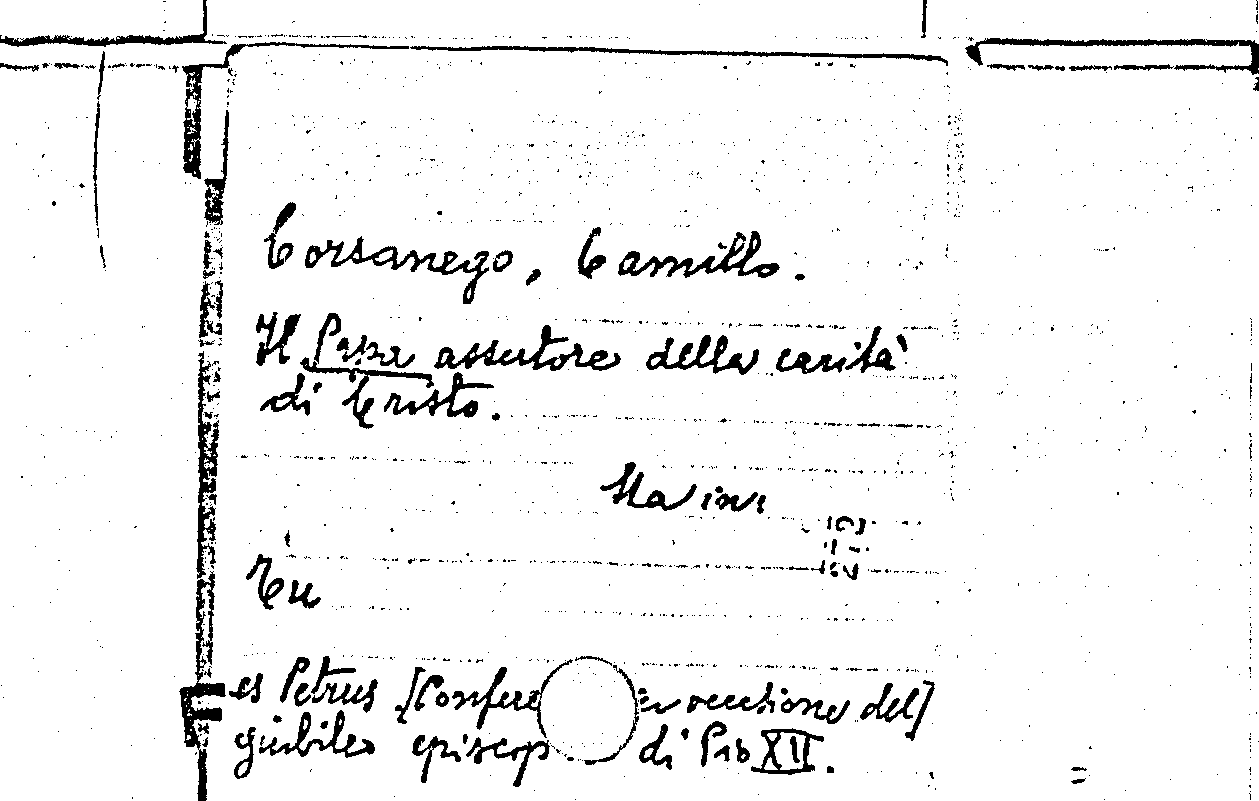 Corsanego, Camillo.
Il Papa assertore della carità
di Cristo.
Tu
es Petrus [Confere in occasione del]
giubileo episcop di Pio XII.